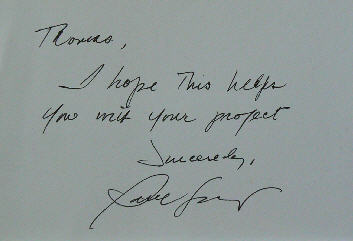 Thomas,
I hope This helps
You with your project
Sincerely,